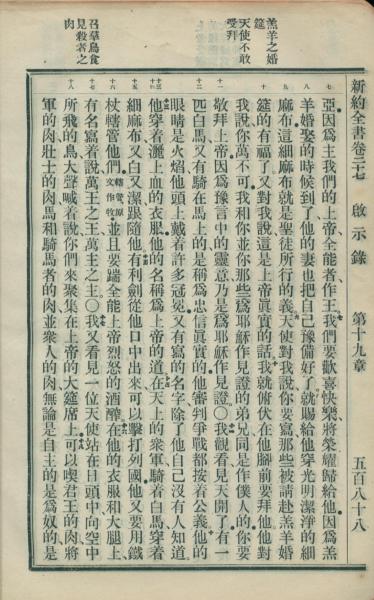 新約全書卷廿七 啟示錄 第十九章 五百八十八
羔羊之婚
筵
天使不敢
受拜
召羣鳥食
見殺者之
肉
七
亞因爲主我們的上帝全能者作王我們要歡喜快樂將榮耀歸給他因爲羔
八
羊婚娶的時候到了他的妻也把自己豫備好了就賜給他穿光明潔淨的細
九
麻布這細麻布就是聖徒所行的義天使對我說你要寫那些被請赴羔羊婚
十
筵的有福了又對我說這是上帝眞實的話我就俯伏在他脚前要拜他他對
我說你萬不可我和你並你那些爲耶穌作見證的弟兄同是作僕人的你要
十一
敬拜上帝因爲豫言中的靈意乃是爲耶穌作見證○我觀看見天開了有一
十二
匹白馬又有騎在馬上的是稱爲忠信眞實的他審判爭戰都按着公義他的
眼睛是火焰他頭上戴着許多冠冕又有寫的名字除了他自己沒有人知道
十三 十四
他穿着灑上血的衣服他的名稱爲上帝的道在天上的衆軍騎着白馬穿着
十五
細麻布又白又潔跟隨他有利劍從他口中出來可以擊打列國他又要用鐵
十六
杖轄管他們轄管原文作牧並且要踹全能上帝烈怒的酒醡在他的衣服和大腿上
十七
有名寫着說萬王之王萬主之主○我又看見一位天使站在日頭中向空中
十八
所飛的鳥大聲喊着說你們來聚集在上帝的大筵席上可以喫君王的肉將
軍的肉壯士的肉馬和騎馬者的肉並衆人的肉無論是自主的是爲奴的是